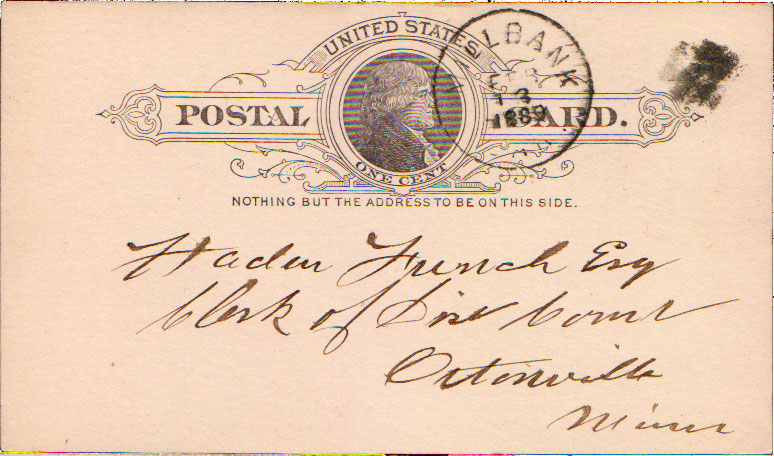 UNITED STATES
POSTAL CARD.
ONE CENT
LBANK
1889
NOTHING BUT THE ADDRESS TO BE ON THIS SIDE.
French Esq
Clerk of Court
Ortonville
Minn